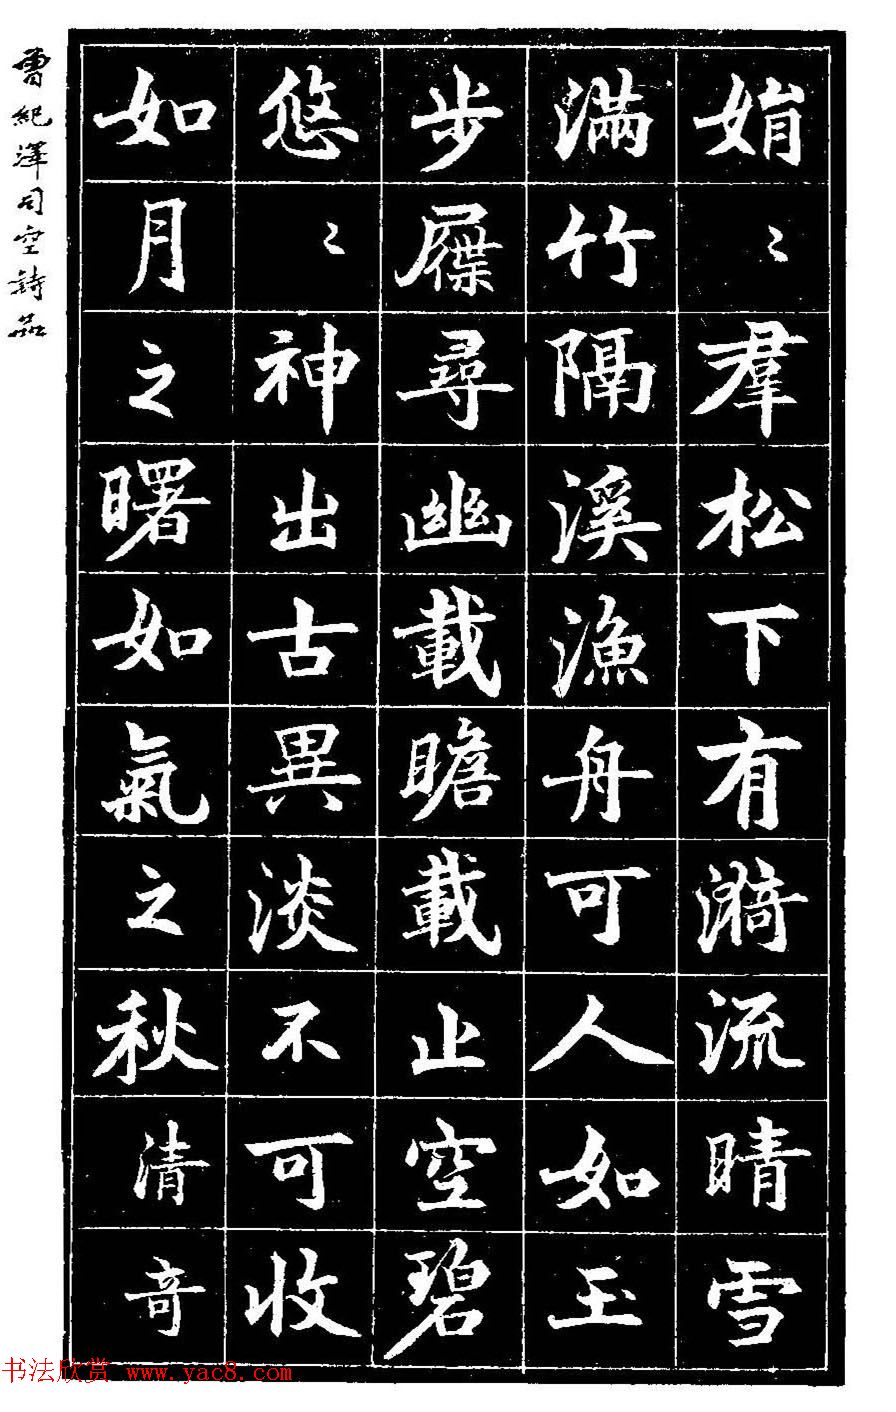 娟〻羣松下有漪流晴雪
滿竹隔溪漁舟可人如玉
步屧尋幽載瞻載止空碧
悠〻神出古異淡不可收
如月之曙如氣之秋清奇
曾紀澤司空詩品
书法欣赏 www.yac8.com